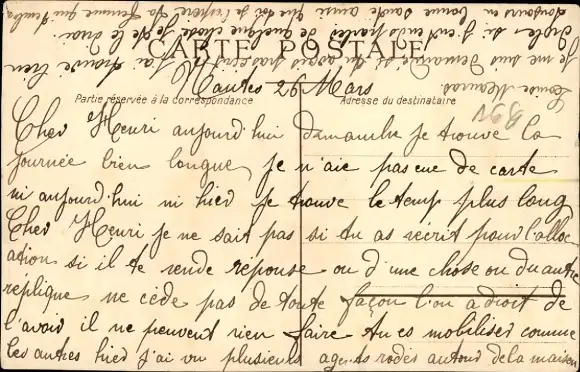 CARTE POSTALE
Nantes 26 Mars
Partie réservée à la correspondance
Adresse du destinataire
Cher Henri aujourd'hui dimanche je trouve la
journée bien longue, je n'aie pas eue de carte
ni aujourd'hui ni hier je trouve le temp plus long
Cher Henri je ne sait pas si tu as récrit pour l'alloc
ation si il te rende réponse ou d'une chose ou du autre
réplique ne cède pas de toute façon l'on a droit de
l'avoir il ne peuvent rien faire tu es mobiliser comme
les autres hier j'ai vu plusieurs agents rodés autour de la maison
je me suis demandé si
j'ai trouvé bien
drôles si j'entend parler de quelque chose je te le dirai
toujours en bonne santé ainsi que toi je l'espère Ta femme qui
Louise